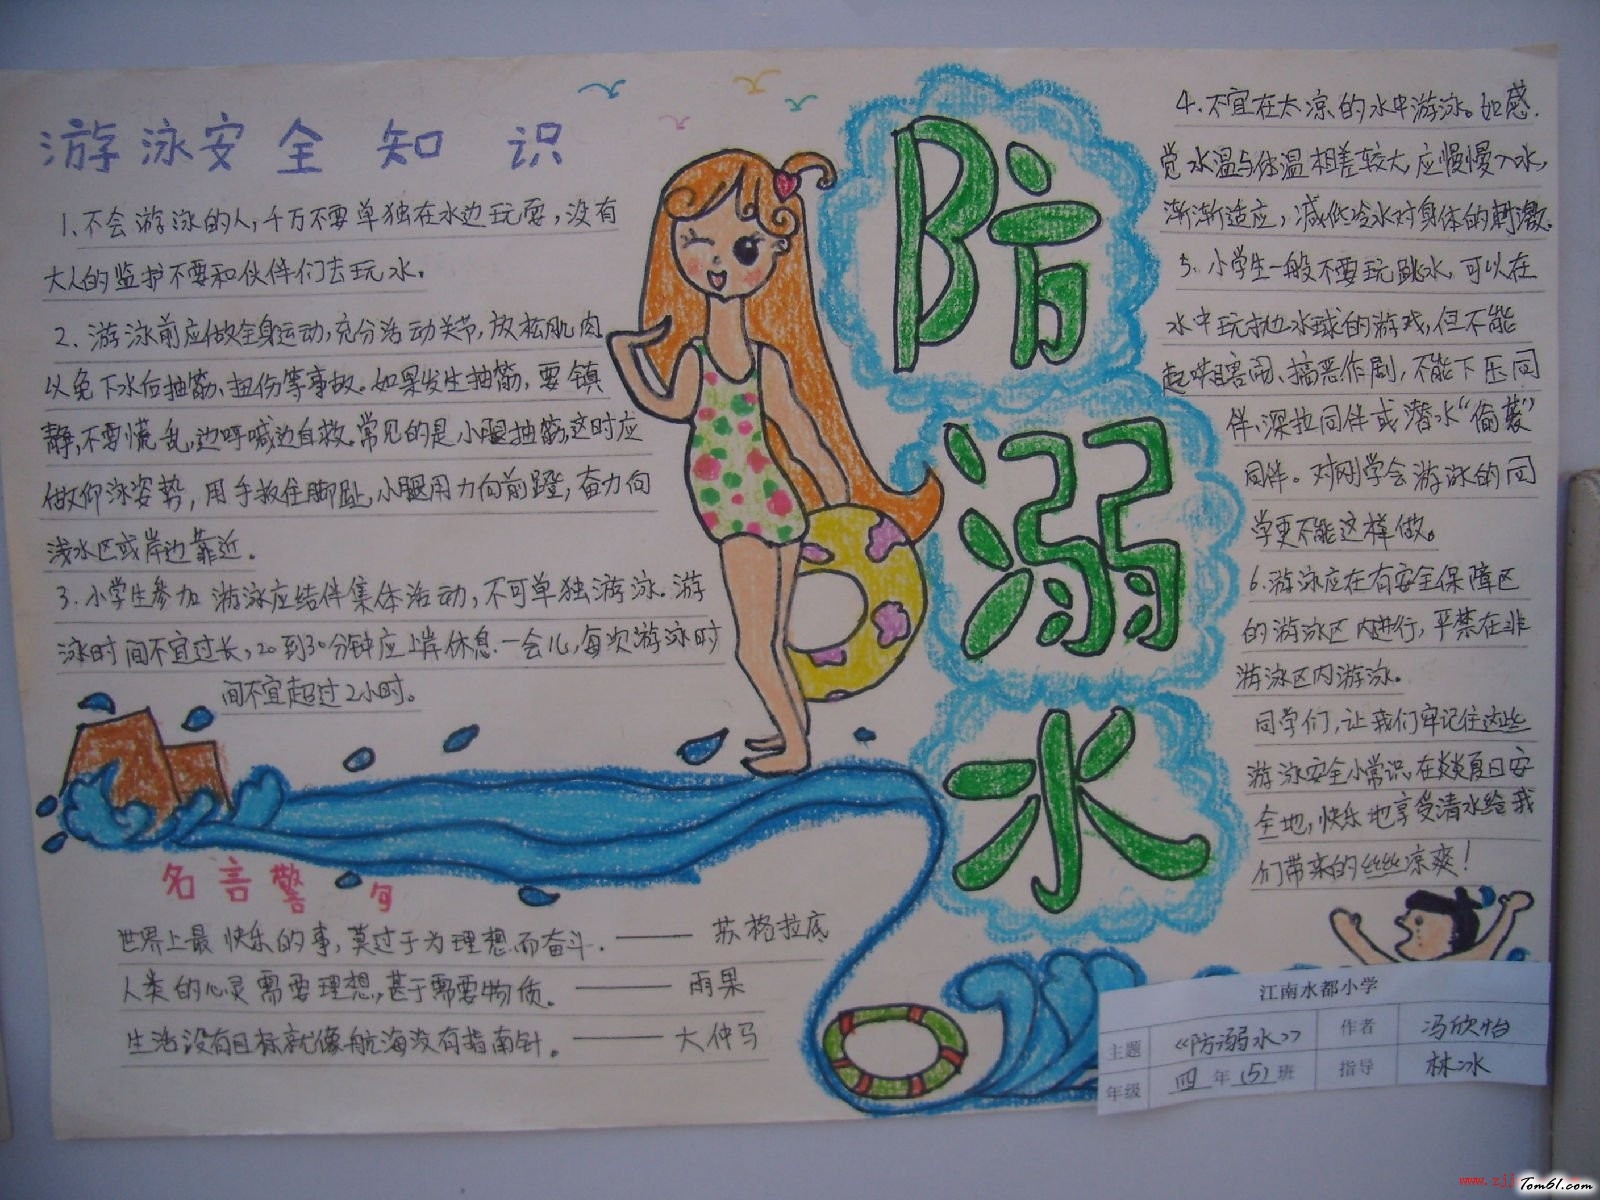 游泳安全知识
1、不会游泳的人,千万不要单独在水边玩耍,没有
大人的监护不要和伙伴们去玩水。
2、游泳前应做全身运动,充分活动关节,放松肌肉
以免下水后抽筋、扭伤等事故。如果发生抽筋,要镇
静,不要慌乱,边呼喊边自救。常见的是小腿抽筋,这时应
做仰泳姿势,用手扳住脚趾,小腿用力向前蹬,奋力向
浅水区或岸边靠近。
3、小学生参加游泳应结伴集体活动,不可单独游泳。游
泳时间不宜过长,20到30分钟应上岸休息一会儿,每次游泳时
间不宜超过2小时。
名言警句
世界上最快乐的事,莫过于为理想而奋斗.——苏格拉底
人类的心灵需要理想,甚于需要物质。——雨果
生活没有目标就像航海没有指南针。——大仲马
防
溺
水
4、不宜在太凉的水中游泳。如感
觉水温与体温相差较大,应慢慢入水,
渐渐适应,减低冷水对身体的刺激.
5、小学生一般不要玩跳水,可以在
水中玩抛水球的游戏,但不能
起哄害闹、搞恶作剧,不能下压同
伴、深拉同伴或潜水“偷袭”
同伴。对刚学会游泳的同
学更不能这样做。
6、游泳应在有安全保障区
的游泳区内进行,严禁在非
游泳区内游泳。
同学们,让我们牢记住这些
游泳安全小常识,在炎炎夏日安
全地,快乐地享受清水给我
们带来的丝丝凉爽!
江南水都小学
主题 《防溺水》 作者 冯欣怡
年级 四年(5)班 指导 林冰
Tom61.com